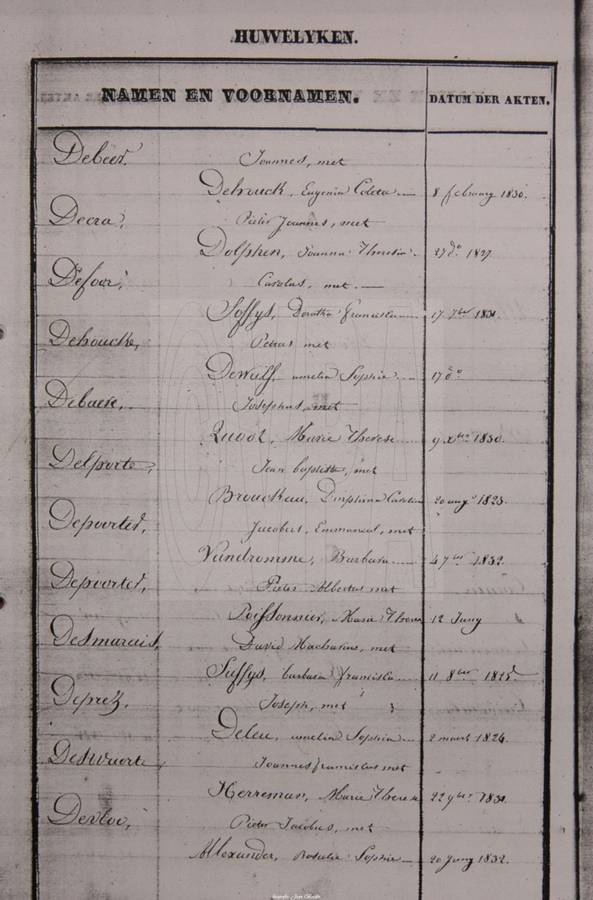 HUWELYKEN.
NAMEN EN VOORNAMEN. DATUM DER AKTEN.
Debeer. Joannes, met
Dehouck, Eugenia Coleta 8 february 1830.
Decra, Pieter Joannes, met
Dolphen, Joanna Theresia. 27 do 1827
Defoor, Carolus, met
Soffys, Dorothe Francisca 17 7ber
Dehoucke, Petrus met
Dewulf, amelia Sophie 17 do
Debaeke, Josephus, met
Marie Therese 9 xber 1830.
Delporte, Jean baptiste, met
Brouckeau, Delphina Carolina 20 augt 1823.
Depoorter, Jacobus, Emmanuel, met
Vandromme, Barbara 4 7ber 1832.
Depoorter, Pieter Albertus met
Poissonnier, Marie Therese 12 Juny
Desmarais, David Macharius, met
Suffys, barbara francisca 11 8ber 1825
Deprez, Joseph, met
Deleu, amelia Sophia 2 maart 1824.
Deswaerte, Joannes franciscus met
Herreman, Marie Therese 22 9ber
Devloo, Pieter Jacobus, met
Allexander, Rosalie Sophie 20 Juny 1832.